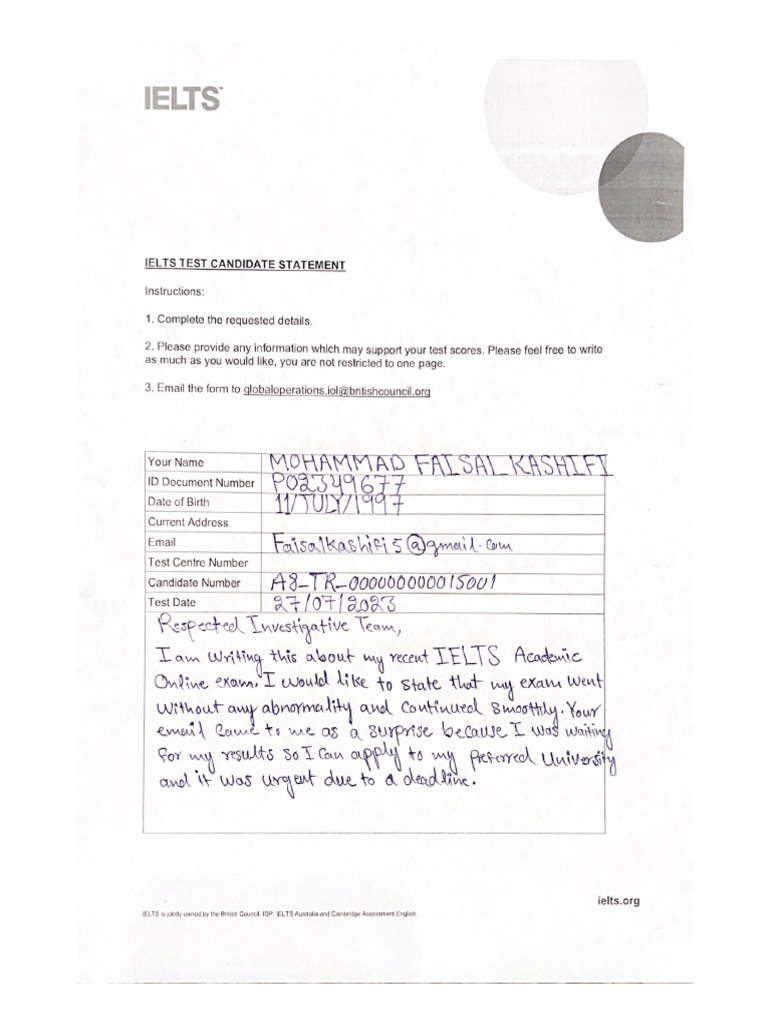 IELTS™
IELTS TEST CANDIDATE STATEMENT
Instructions:
1. Complete the requested details.
2. Please provide any information which may support your test scores. Please feel free to write
as much as you would like, you are not restricted to one page.
3. Email the form to globaloperations.iol@britishcouncil.org
Your Name MOHAMMAD FAISAL KASHIFI
ID Document Number P02349677
Date of Birth 11/JULY/1997
Current Address
Email Faisalkashifi5@gmail.com
Test Centre Number
Candidate Number A8-TR-000000000015001
Test Date 27/07/2023
Respected Investigative Team,
I am writing this about my recent IELTS Academic
Online exam. I would like to state that my exam went
without any abnormality and continued smoothly. Your
email came to me as a surprise because I was waiting
for my results so I can apply to my preferred University
and it was urgent due to a deadline.
ielts.org
IELTS is jointly owned by the British Council, IDP: IELTS Australia and Cambridge Assessment English.